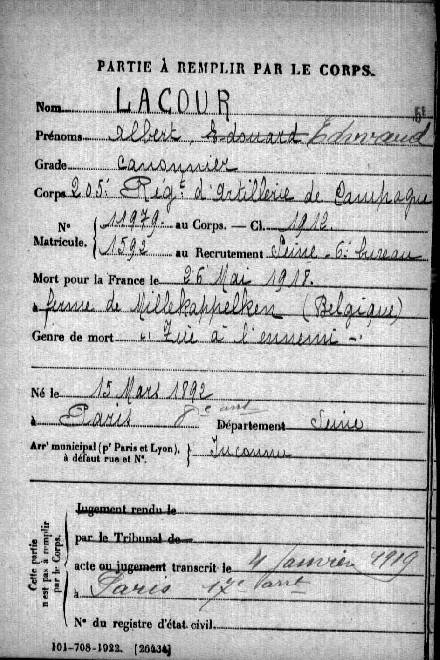 PARTIE À REMPLIR PAR LE CORPS.
Nom LACOUR
Prénoms Albert, Edouard Edouard
Grade canonnier
Corps 205e Régt d'Artillerie de Campagne
N° Matricule. { 11979 au Corps. — Cl. 1912.
1592 au Recrutement Seine - 6e bureau
Mort pour la France le 26 Mai 1918.
à ferme de Millekappelken (Belgique)
Genre de mort "Tué à l'ennemi"
Né le 15 Mars 1892
à Paris 8e arrt Département Seine
Arrt municipal (pr Paris et Lyon), à défaut rue et N°. } Inconnu
Cette partie n'est pas à remplir par le Corps.
Jugement rendu le
par le Tribunal de
acte ou jugement transcrit le 4 Janvier 1919
à Paris 17e arrt
N° du registre d'état civil
101-708-1922. [26434]